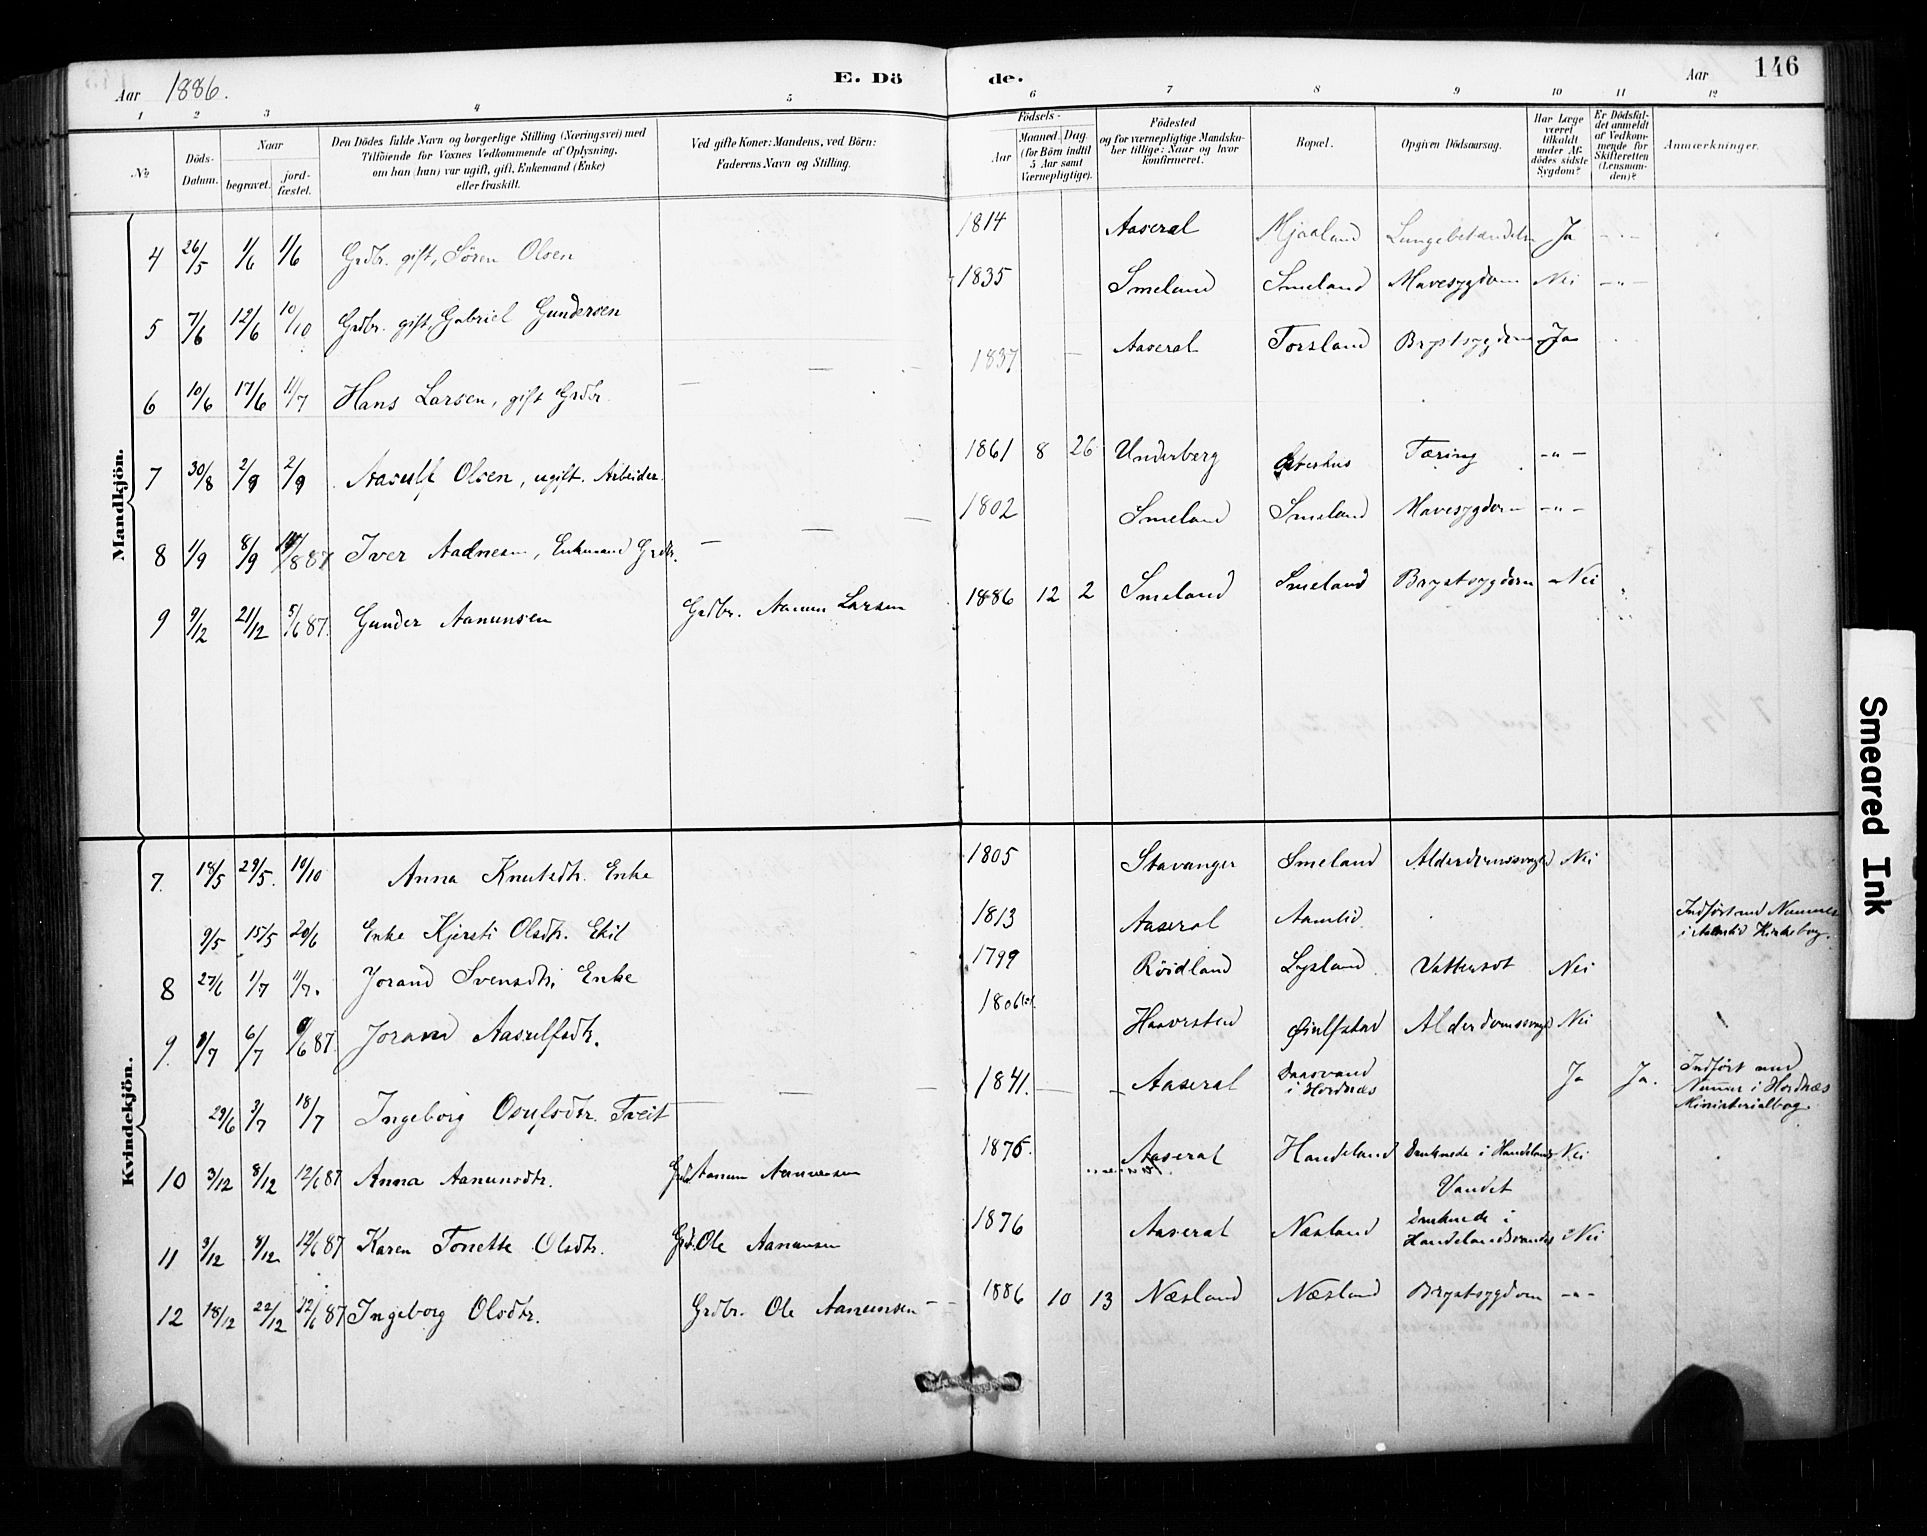 Aar 1886. E. Dö de. Aar 146
1 2 3 4 5 6 7 8 9 10 11 12
№
Döds-Datum.
Naar
begravet.
jord-fæstet.
Den Dödes fulde Navn og borgerlige Stilling (Næringsvei) med
Tilföiende for Voxnes Vedkommende af Oplysning,
om han (hun) var ugift, gift, Enkemand (Enke)
eller fraskilt.
Ved gifte Koner: Mandens, ved Börn:
Faderens Navn og Stilling.
Födsels-
Aar
Maaned. Dag.
(for Börn indtil
5 Aar samt
Værnepligtige).
Födested
og for værnepligtige Mandska-
ber tillige: Naar og hvor
konfirmeret.
Bopæl.
Opgiven Dödsaarsag.
Har Læge
været
tilkaldt
under Af-
dödes sidste
Sygdom?
Er Dödsfal-
det anmeldt
af Vedkom-
mende for
Skifteretten
(Lensman-
den)?
Anmærkninger.
Mandkjön.
4 26/5 1/6 1/6 Grdbr. gift, Sören Olsen 1814 Aaseral Mjaaland Lungebetændelse Ja -"-
5 7/6 12/6 10/10 Grdbr. gift, Gabriel Gundersen 1835 Smeland Smeland Mavesygdom Nei -"-
6 10/6 17/6 11/7 Hans Larsen, gift Grdbr. — — 1837 Aaseral Torsland Brystsygdom Ja
7 30/8 2/9 2/9 Aasulf Olsen, ugift. Arbeider. 1861 8 26 Underberg Tæring -"-
8 1/9 8/9 /887 Iver Aadnesen, Enkemand Grdbr. — — — 1802 Smeland Smeland Mavesygdom -"-
9 9/12 21/12 5/6 87. Gunder Aanunsen Grdbr. Aanun Larsen 1886 12 2 Smeland Smeland Brystsygdom Nei
Kvindekjön.
7. 18/5 29/5. 10/10 Anna Knutsdtr. Enke 1805 Stavanger Smeland Alderdomssvaghed Nei
9/5 15/5 20/6 Enke Kjersti Olsdtr. Ekil 1813 Aaseral Aamlid Indført med Nummer
i Aamlid Kirkebog.
8 27/6 1/7 11/7. Jorand Svensdtr. Enke 1799 Röidland Lysland Vattersot Nei
9. 1/7 6/7 /6 87. Jorand Aasulfsdtr. 1806 Haaversten Alderdomssvaghed Nei
29/6 3/7 18/7 Ingeborg Osufsdtr. Tveit — — — 1841. — — Aaseral Daasvand
i Hordnæs Ja Ja. Indført med
Nummer i Hordnæs
Ministerialbog.
10 3/12 8/12 12/6 87 Anna Aanunsdtr. Grdb. Aanun Aanunsen 1875. Aaseral Handeland Druknede i Handelands
Vandet Nei
11 3/12 8/12 12/6 87 Karen Tonette Olsdtr. Grdb. Ole Aanunsen 1876 Aaseral Næsland Druknede i
Handelandsvandet Nei
12 18/12 22/12 12/6 87 Ingeborg Olsdtr. Grdbr. Ole Aanunsen — 1886 10 13 Næsland Næsland Brystsygdom -"-
Smeared Ink